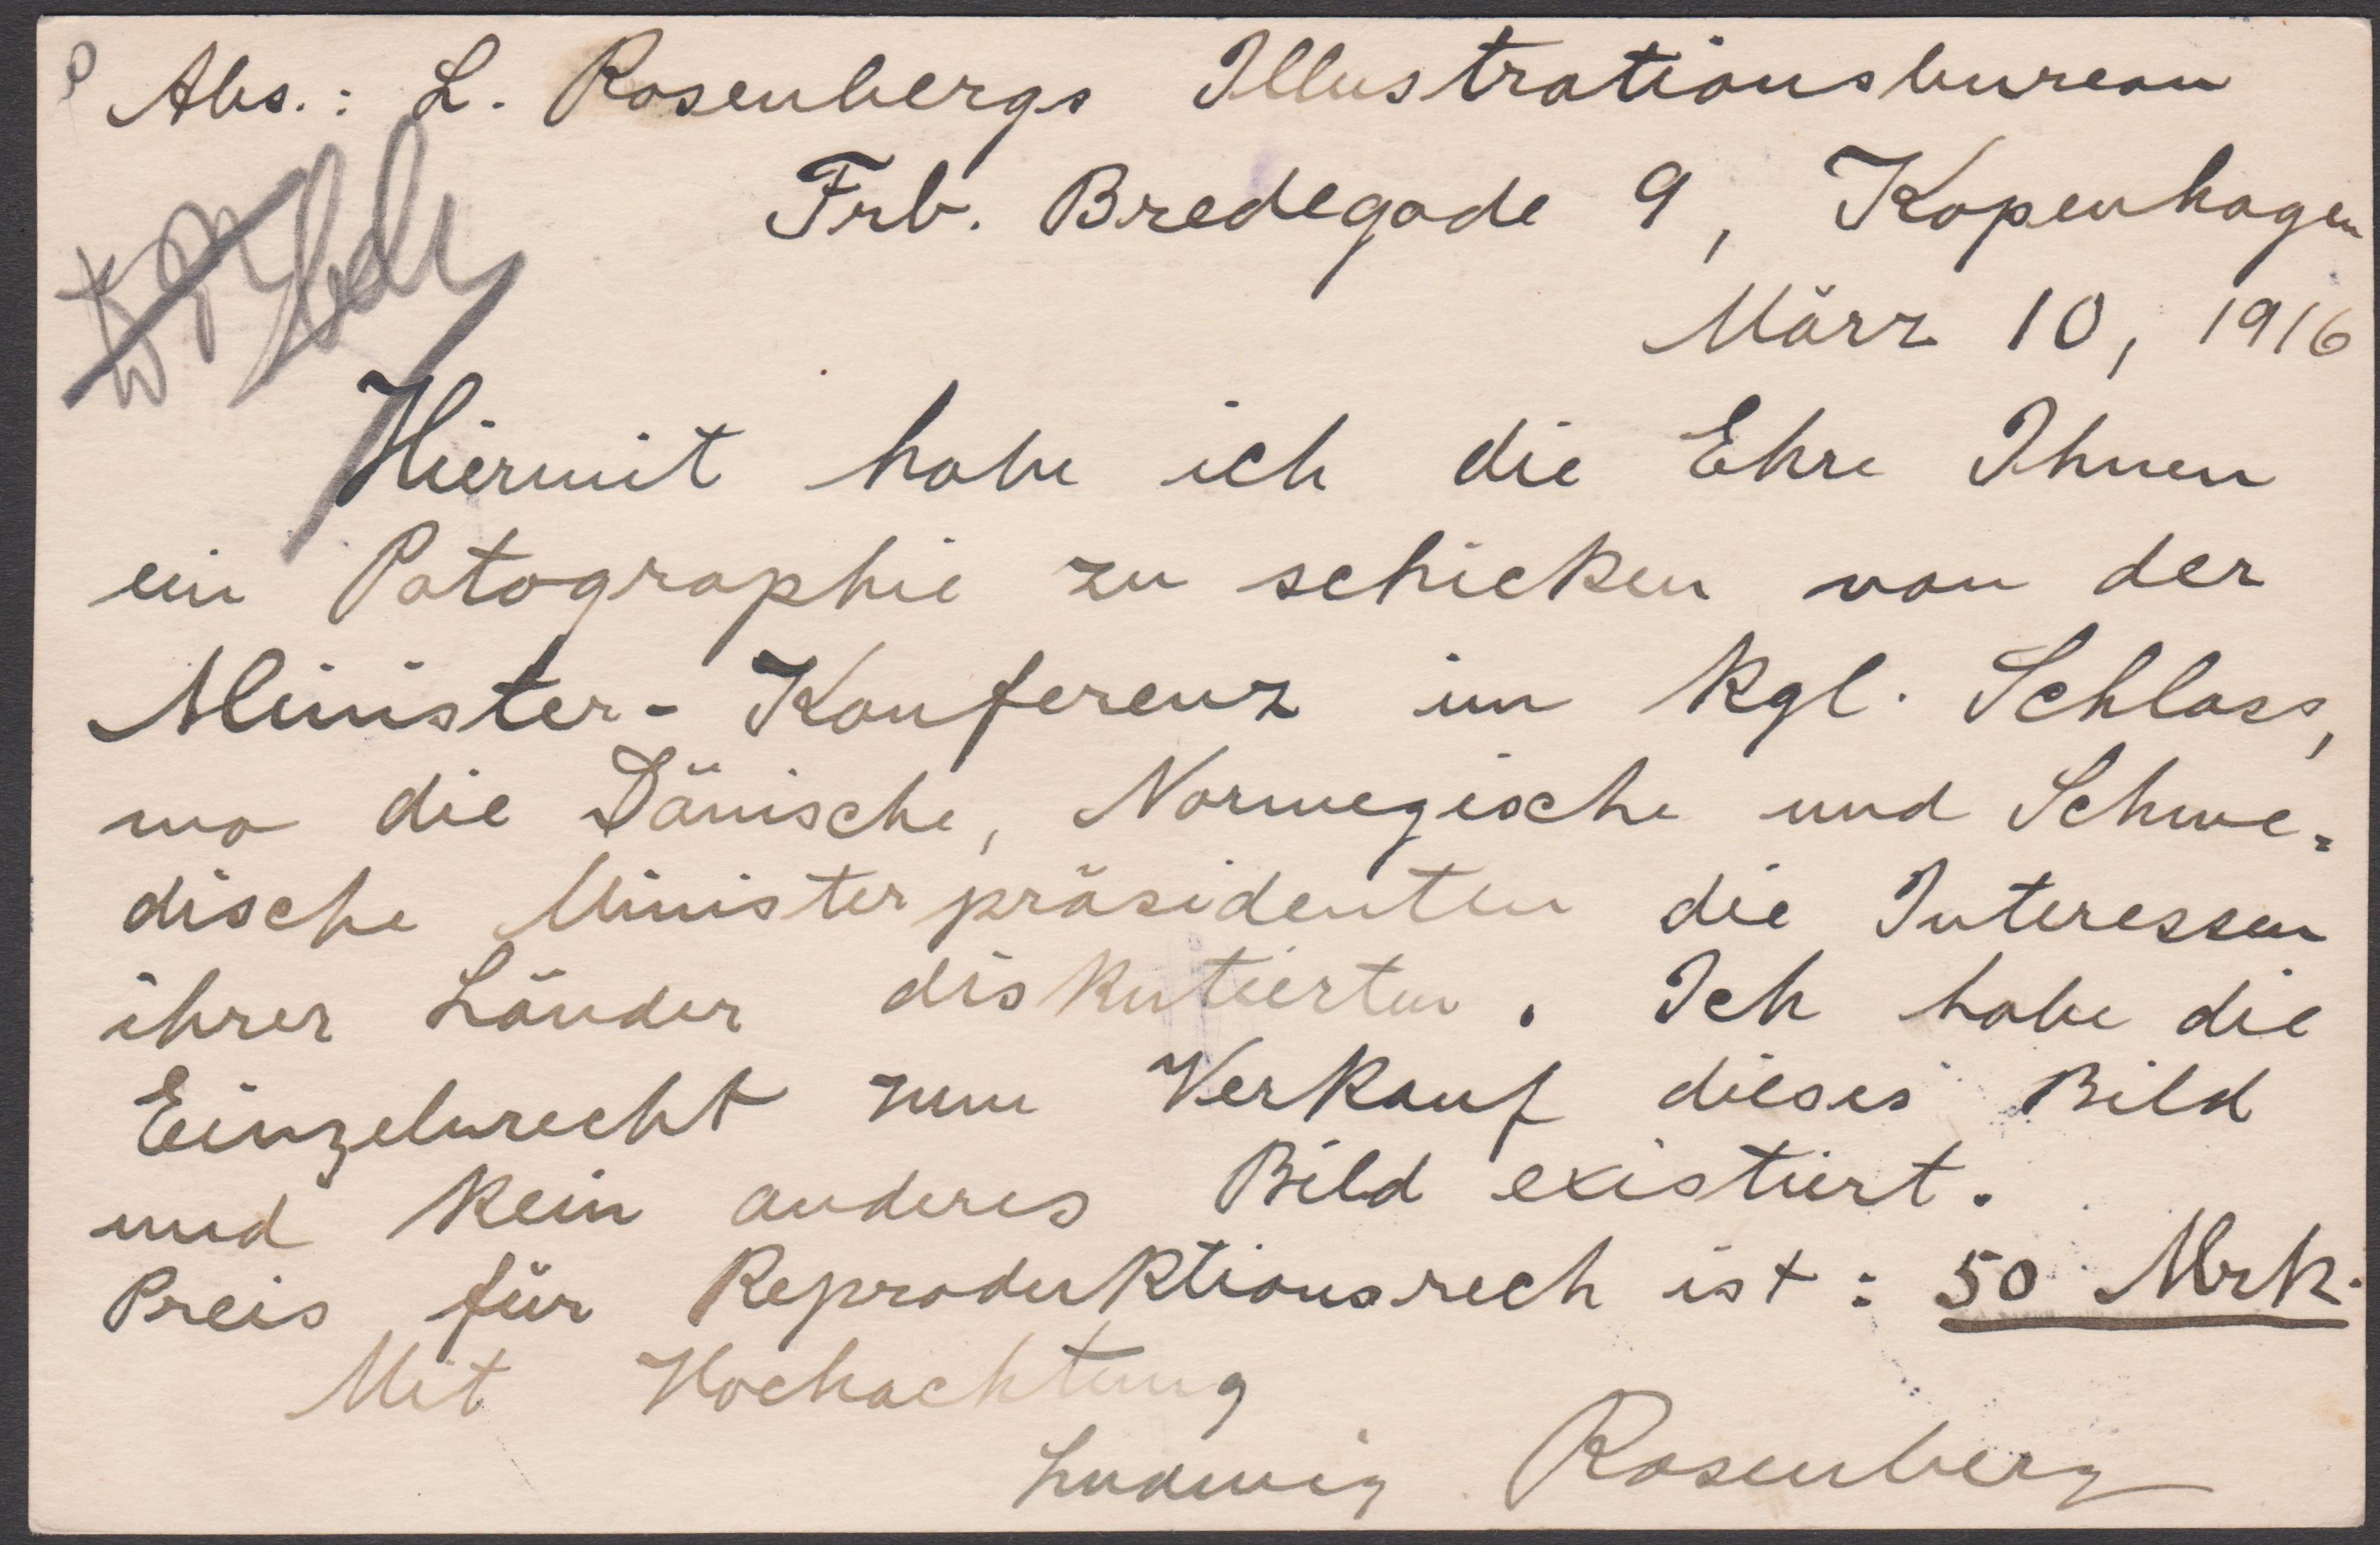 Abs.: L. Rosenbergs Illustrationsbureau
Frb. Bredegade 9, Kopenhagen
März 10, 1916
Hiermit habe ich die Ehre Ihnen
ein Potographie zu schicken von der
Minister-Konferenz im kgl. Schloss,
wo die Dänische, Norwegische und Schwe=
dische Ministerpräsidenten die Interessen
ihrer Länder diskutierten. Ich habe die
Einzelnrecht zum Verkauf dieses Bild
und kein anderes Bild existiert.
Preis für Reproduktionsrech ist: 50 Mrk.
Mit Hochachtung
Ludwig Rosenberg